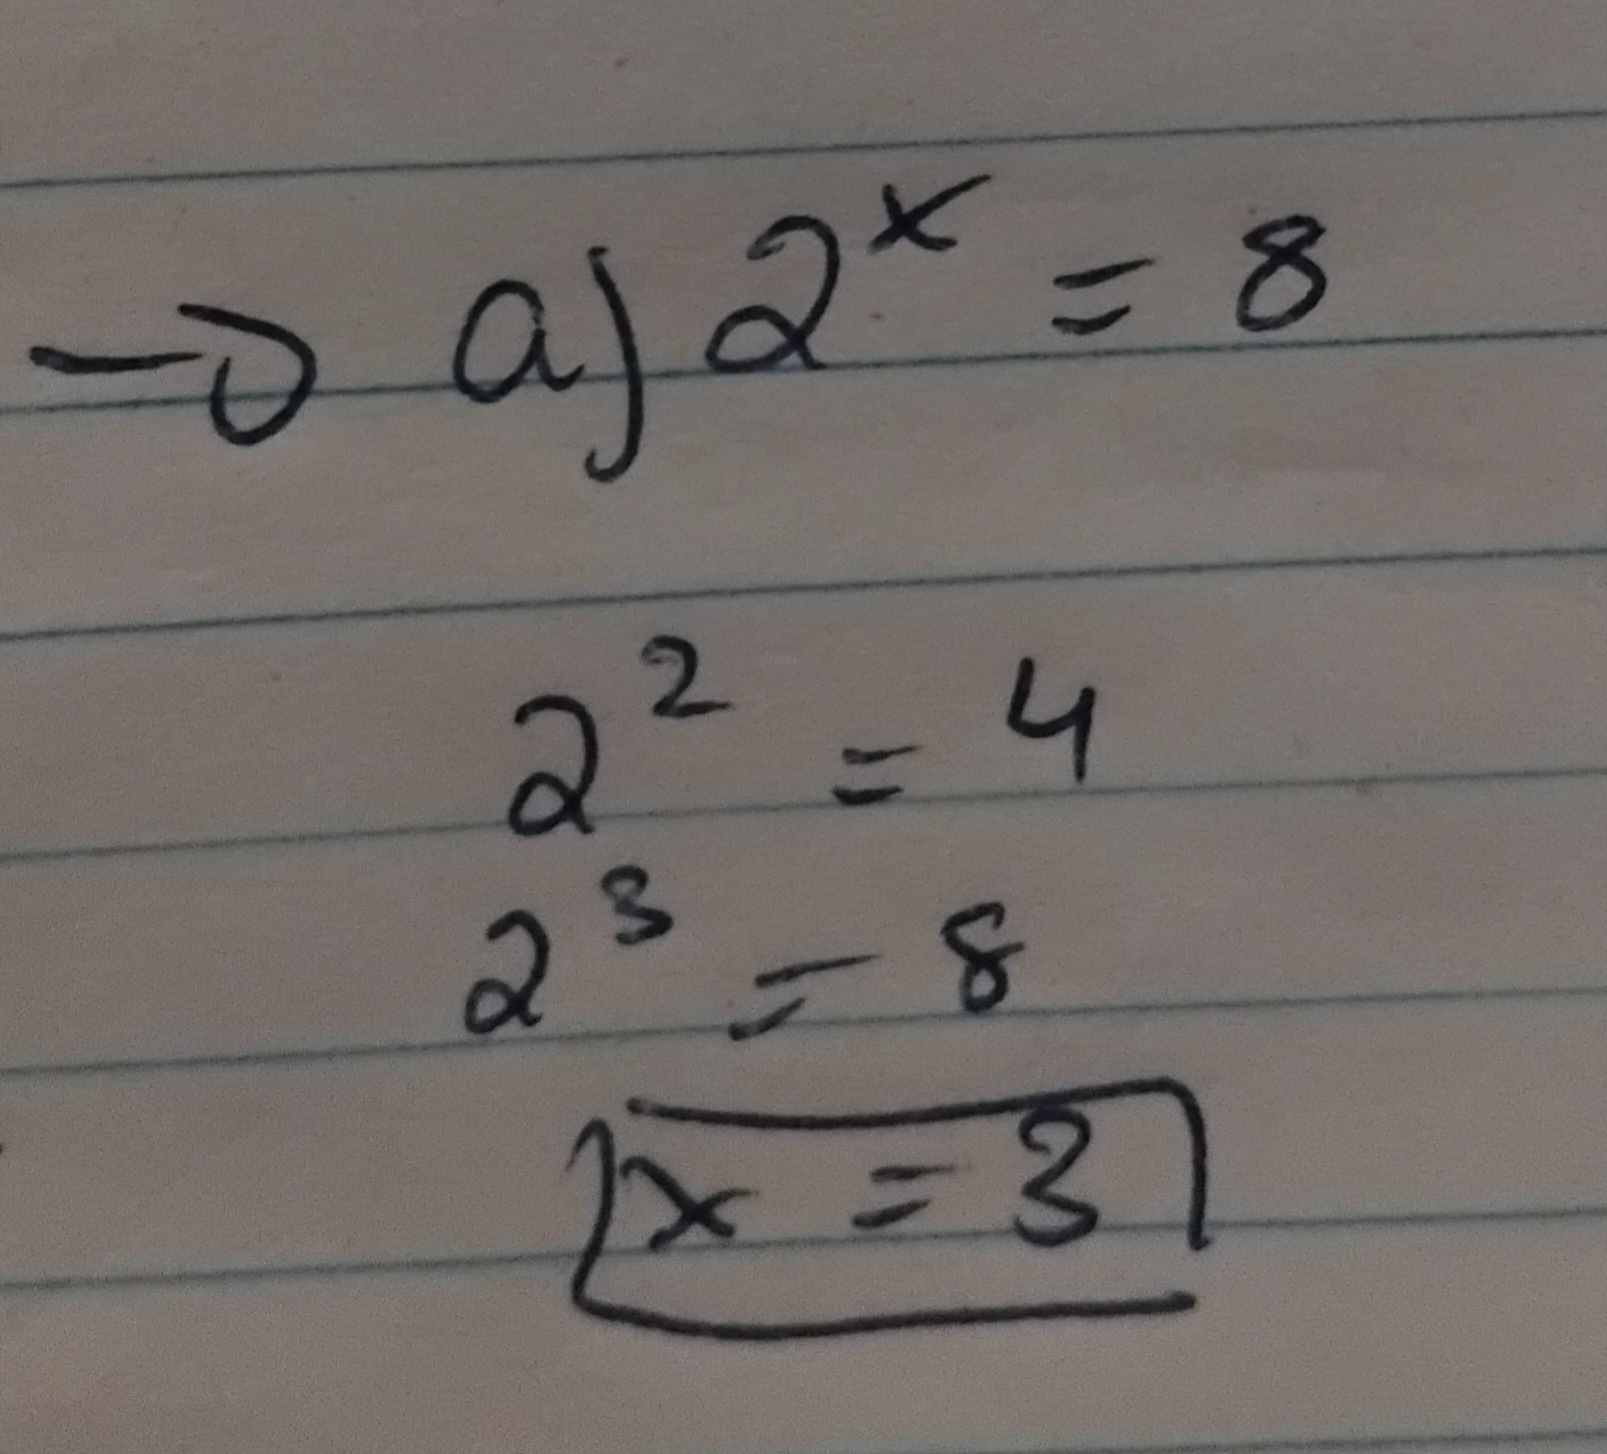 → a) 2ˣ = 8
2² = 4
2³ = 8
x = 3